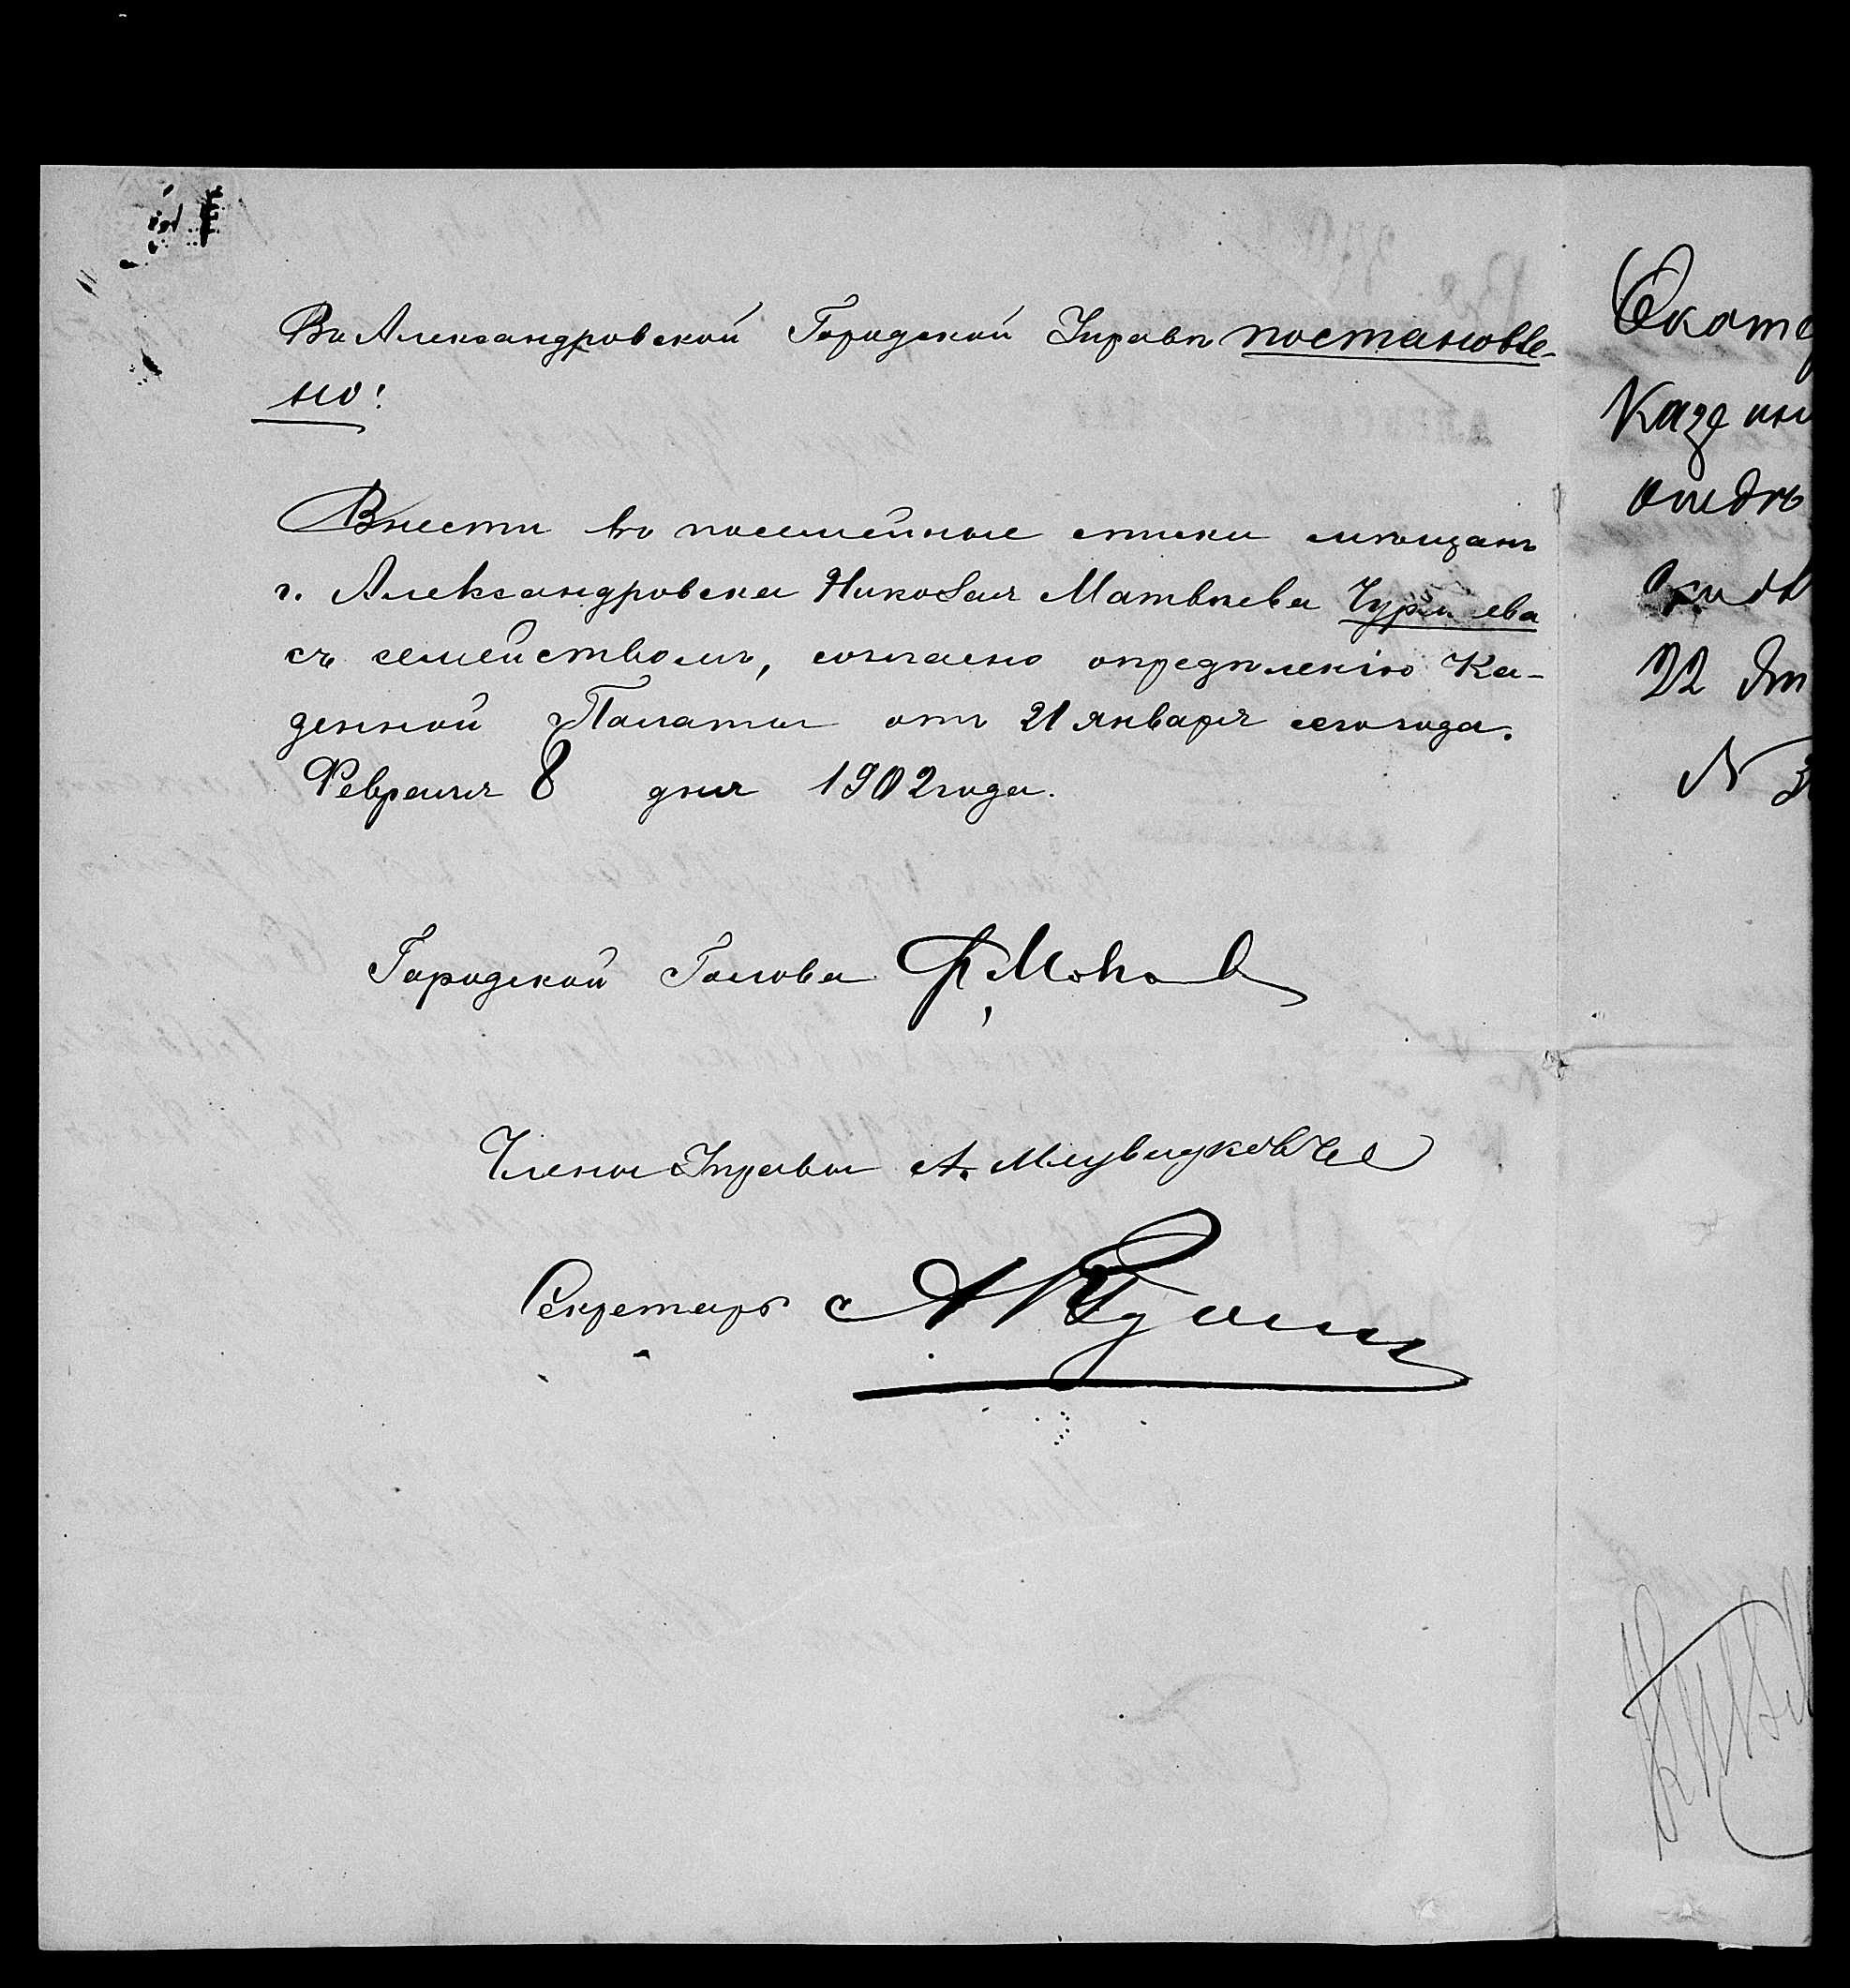 Въ Александровской Городской Управѣ постановле-
но:
Внести въ посемейные списки мѣщанъ
г. Александровска Николая Матвѣева
съ семействомъ, согласно опредѣленію Ка-
зенной Палаты отъ 21 января сего года.
Февраля 8 дня 1902 года.
Городской Голова Ф. Мов
Члены Управы А.
Секретарь А
Екате
Казенн
22
№ 3